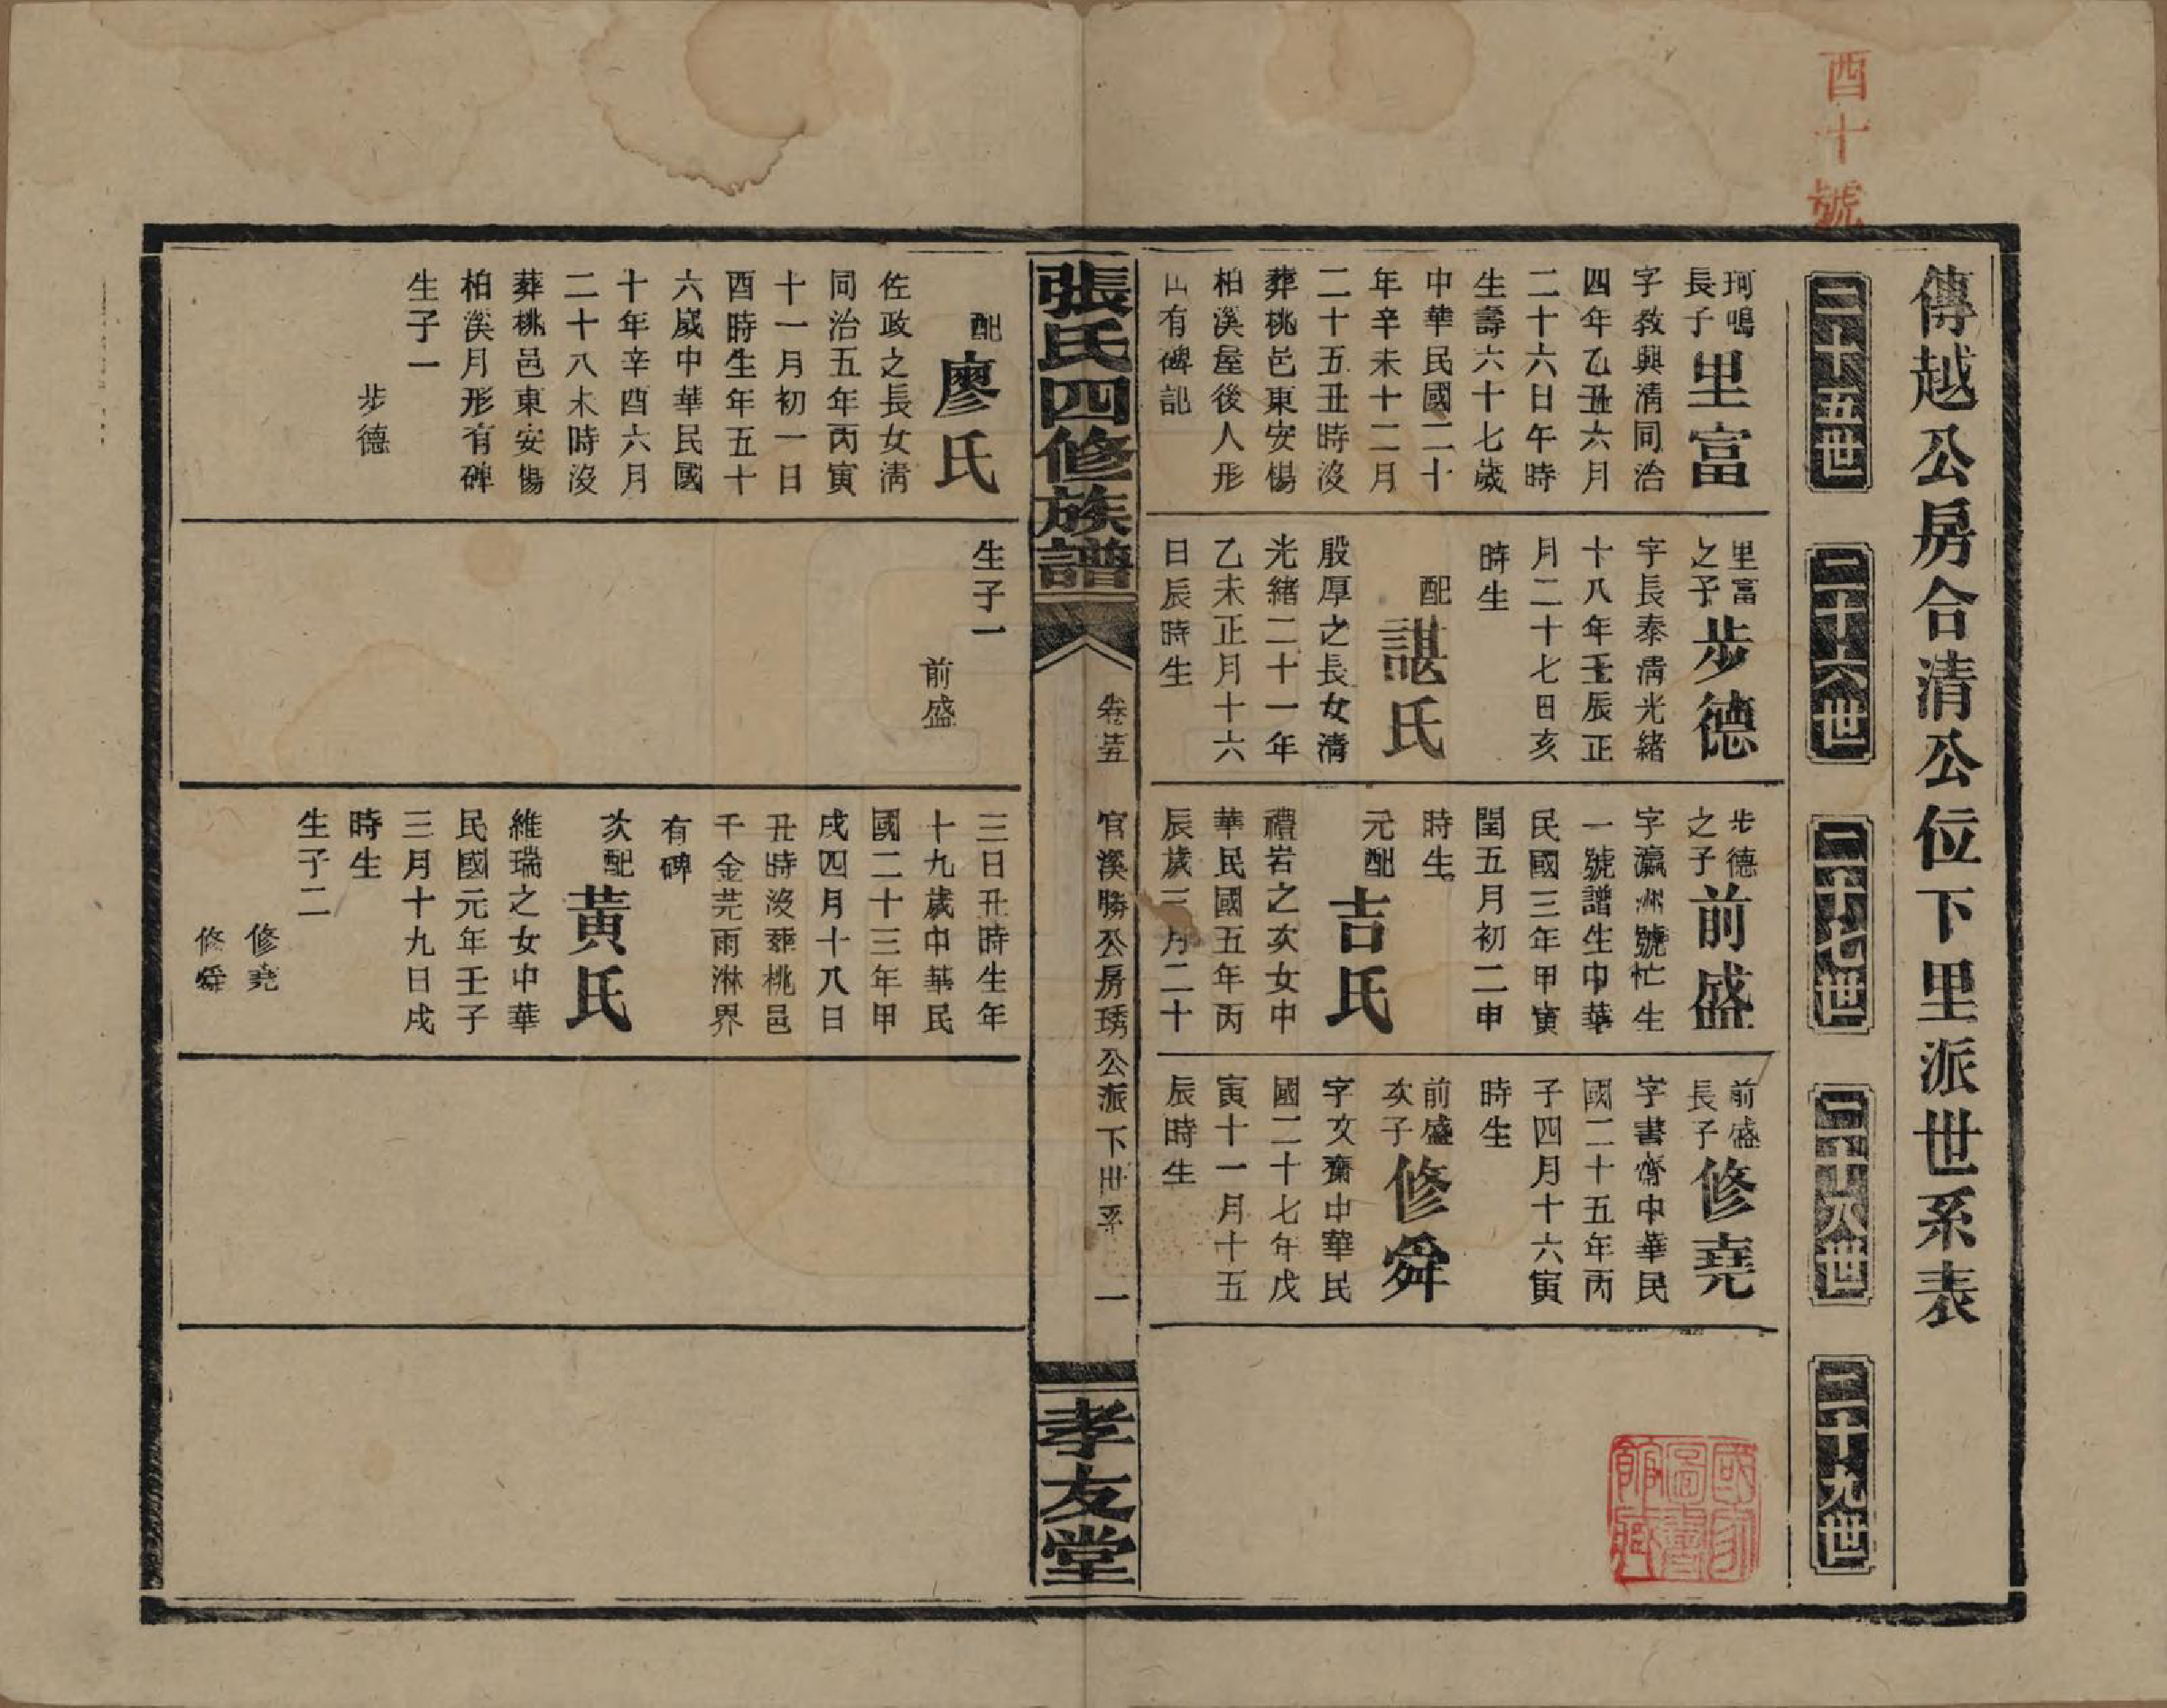 酉十號
傳越公房合清公位下里派世系表
二十五世
二十六世
二十七世
二十八世
二十九世
珂鳴
長子
里富
字教興清同治
四年乙丑六月
二十六日午時
生壽六十七歲
中華民國二十
年辛未十二月
二十五丑時沒
葬桃邑東安楊
柏溪屋後人形
山有碑記
配
廖氏
佐政之長女清
同治五年丙寅
十一月初一日
酉時生年五十
六歲中華民國
十年辛酉六月
二十八未時沒
葬桃邑東安楊
柏溪月形有碑
生子一
步德
里富
之子
步德
字長泰清光緒
十八年壬辰正
月二十七日亥
時生
配
諶氏
殷厚之長女清
光緒二十一年
乙未正月十六
日辰時生
生子一
前盛
步德
之子
前盛
字瀛洲號忙生
一號譜生中華
民國三年甲寅
閏五月初二申
時生
元配
吉氏
禮岩之次女中
華民國五年丙
辰歲三月二十
三日丑時生年
十九歲中華民
國二十三年甲
戌四月十八日
丑時沒葬桃邑
千金芫雨淋界
有碑
次配
黃氏
維瑞之女中華
民國元年壬子
三月十九日戌
時生
生子二
修堯
修舜
前盛
長子
修堯
字書齋中華民
國二十五年丙
子四月十六寅
時生
前盛
次子
修舜
字文齋中華民
國二十七年戊
寅十一月十五
辰時生
張氏四修族譜
官溪勝公房琇公派下世系
一
孝友堂
國家圖書館藏